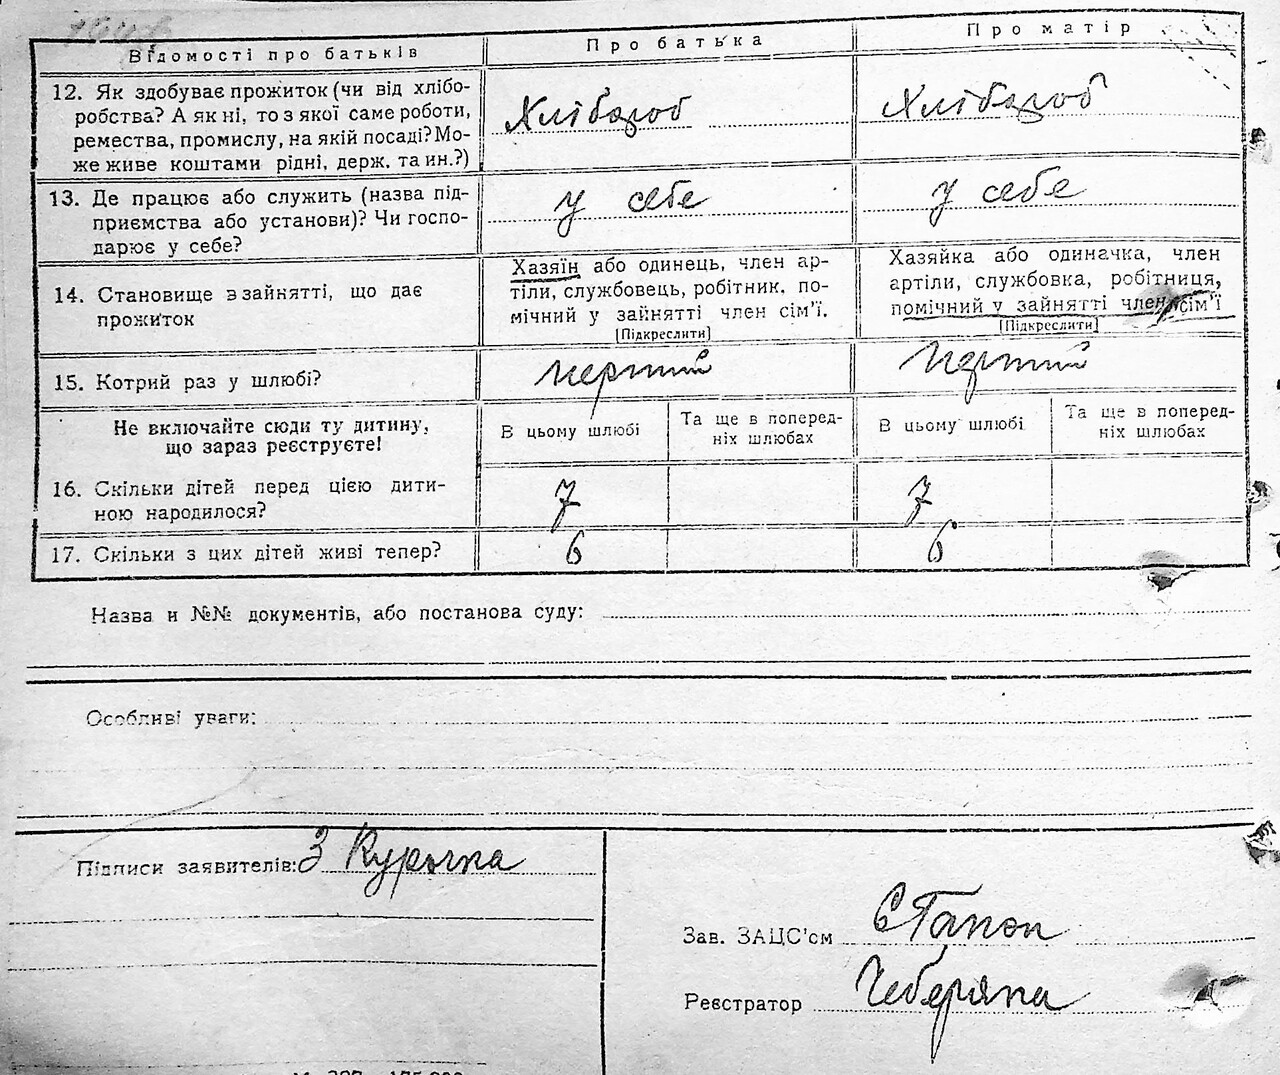 Відомості про батьків
Про батька
Про матір
12. Як здобуває прожиток (чи від хлібо-
робства? А як ні, то з якої саме роботи,
ремества, промислу, на якій посаді? Мо-
же живе коштами рідні, держ. та ин.?)
Хлібороб
Хлібороб
13. Де працює або служить (назва під-
приємства або установи)? Чи госпо-
дарює у себе?
у себе
у себе
14. Становище в зайнятті, що дає
прожиток
Хазяїн або одинець, член ар-
тіли, службовець, робітник, по-
мічний у зайнятті член сім'ї.
[Підкреслити]
Хазяйка або одиначка, член
артіли, службовка, робітниця,
помічний у зайнятті член сім'ї
[Підкреслити]
15. Котрий раз у шлюбі?
перший
перший
Не включайте сюди ту дитину,
що зараз реєструєте!
В цьому шлюбі
Та ще в поперед-
ніх шлюбах
В цьому шлюбі
Та ще в поперед-
ніх шлюбах
16. Скільки дітей перед цією дити-
ною народилося?
7
7
17. Скільки з цих дітей живі тепер?
6
6
Назва и №№ документів, або постанова суду:
Особливі уваги:
Підписи заявителів: З Курочка
Зав. ЗАЦС'ом
Реєстратор Чеберяка